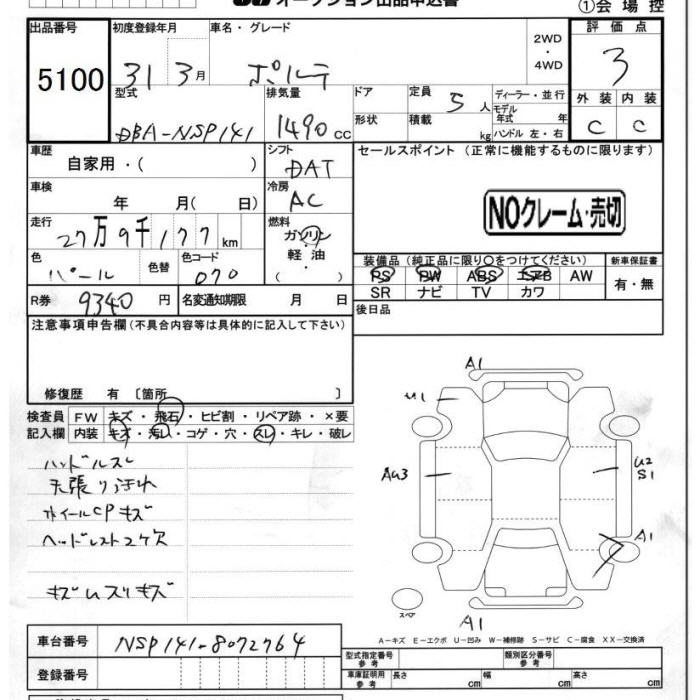 オークション出品申込書
①会場控
出品番号
5100
初度登録年月
31 3月
車名・グレード
ポルテ
2WD
・
4WD
評価点
3
外装 内装
C C
型式
DBA-NSP141
排気量
1490cc
ドア
形状
定員 5人
積載 kg
ディーラー・並行
モデル年式 年
ハンドル 左・右
車歴
自家用・( )
シフト
DAT
セールスポイント (正常に機能するものに限ります)
NOクレーム・売切
車検
年 月( 日)
冷房
AC
走行
27万9千177km
燃料
ガソリン
・
軽油
・
( )
色
パール
色替
色コード
070
装備品(純正品に限り〇をつけてください)
PS PW ABS エアB AW
SR ナビ TV カワ
新車保証書
有・無
R券 9340円
名変通知期限 月 日
後日品
注意事項申告欄(不具合内容等は具体的に記入して下さい)
修復歴 有 〔箇所 〕
検査員
記入欄
FW キズ・飛石・ヒビ割・リペア跡・×要
内装 キズ・汚れ・コゲ・穴・スレ・キレ・破レ
ハンドルスレ
天張りよごれ
ホイールCPキズ
ヘッドレスト2ケ欠
キズUスリキズ
A1
U1
AU3
U2
S1
A1
A1
スペア
A-キズ E-エクボ U-凹み W-補修跡 S-サビ C-腐食 XX-交換済
車台番号 NSP141-8072764
登録番号
型式指定番号
参考
類別区分番号
参考
車庫証明用
参考
長さ cm 幅 cm 高さ cm